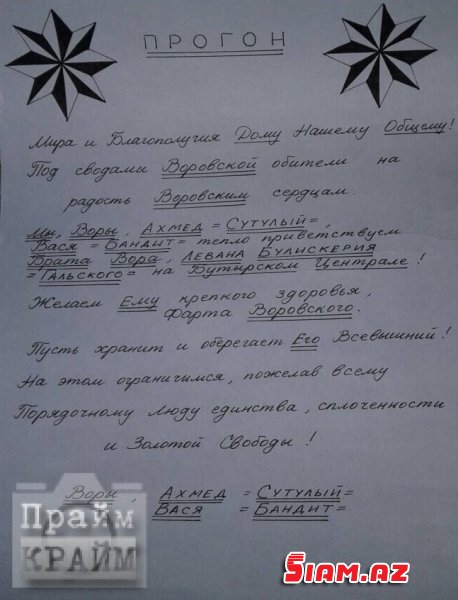 ПРОГОН
Мира и Благополучия Дому Нашему Общему!
Под сводами Воровской обители на
радость Воровским сердцам.
Мы, Воры, АХМЕД =СУТУЛЫЙ=,
ВАСЯ =БАНДИТ= тепло приветствуем
Брата Вора, ЛЕВАНА БУЛИСКЕРИЯ
=ГАЛЬСКОГО= на Бутырском Централе!
Желаем Ему крепкого здоровья,
Фарта Воровского.
Пусть хранит и оберегает Его Всевышний!
На этом ограничимся, пожелав всему
Порядочному Люду единства, сплоченности
и Золотой Свободы!
Воры, АХМЕД =СУТУЛЫЙ=
ВАСЯ =БАНДИТ=
Прайм
КРАЙМ
SIAM.AZ